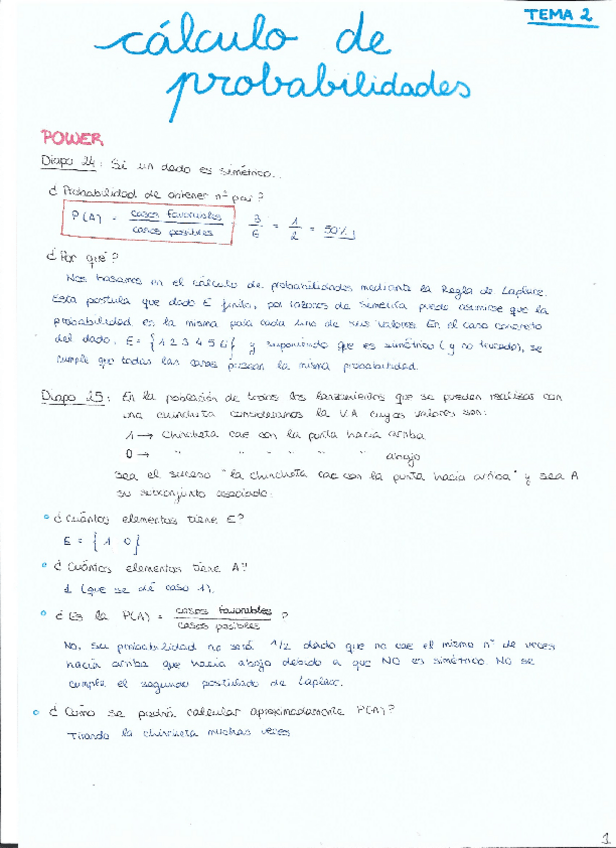 TEMA 2
cálculo de
probabilidades
POWER
Diapo 24: Si un dado es simétrico...
¿Probabilidad de obtener nº par?
P(A) = casos favorables / casos posibles 3/6 = 1/2 = 50%
¿Por qué?
Nos basamos en el cálculo de probabilidades mediante la Regla de Laplace.
Esta postula que dado E finito, por razones de simetría puede asumirse que la
probabilidad es la misma para cada uno de sus valores. En el caso concreto
del dado, E = {1 2 3 4 5 6} y suponiendo que es simétrico (y no trucado), se
cumple que todas las caras poseen la misma probabilidad.
Diapo 25: En la población de todos los lanzamientos que se pueden realizar con
una chincheta consideramos la V.A cuyos valores son:
1 → Chincheta cae con la punta hacia arriba
0 → " " " " " " abajo
Sea el suceso "la chincheta cae con la punta hacia arriba" y sea A
su subconjunto asociado:
¿Cuántos elementos tiene E?
E = { 1 0 }
¿Cuántos elementos tiene A?
1 (que se dé caso 1).
¿Es la P(A) = casos favorables / casos posibles ?
No, su probabilidad no será 1/2 dado que no cae el mismo nº de veces
hacia arriba que hacia abajo debido a que NO es simétrico. NO se
cumple el segundo postulado de Laplace.
¿Cómo se podría calcular aproximadamente P(A)?
Tirando la chincheta muchas veces
1